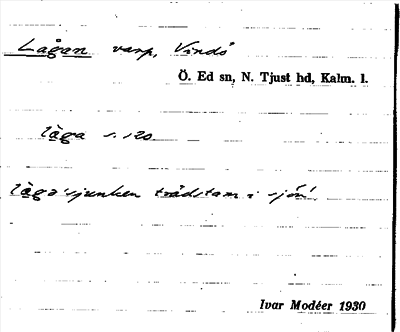 Lågan varp, Vindö
Ö. Ed sn, N. Tjust hd, Kalm. l.
låga s. 120
låga 'sjunken trädstam i sjön'.
Ivar Modéer 1930